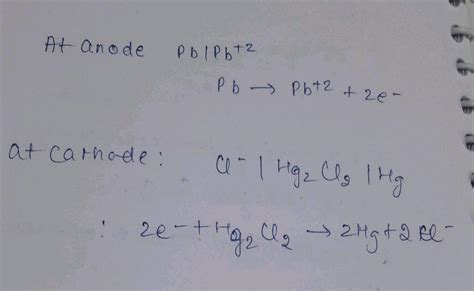 At anode Pb|Pb+2
Pb → Pb+2 + 2e-
at carhode : Cl- | Hg2Cl2 | Hg
: 2e- + Hg2Cl2 → 2Hg+2Cl-